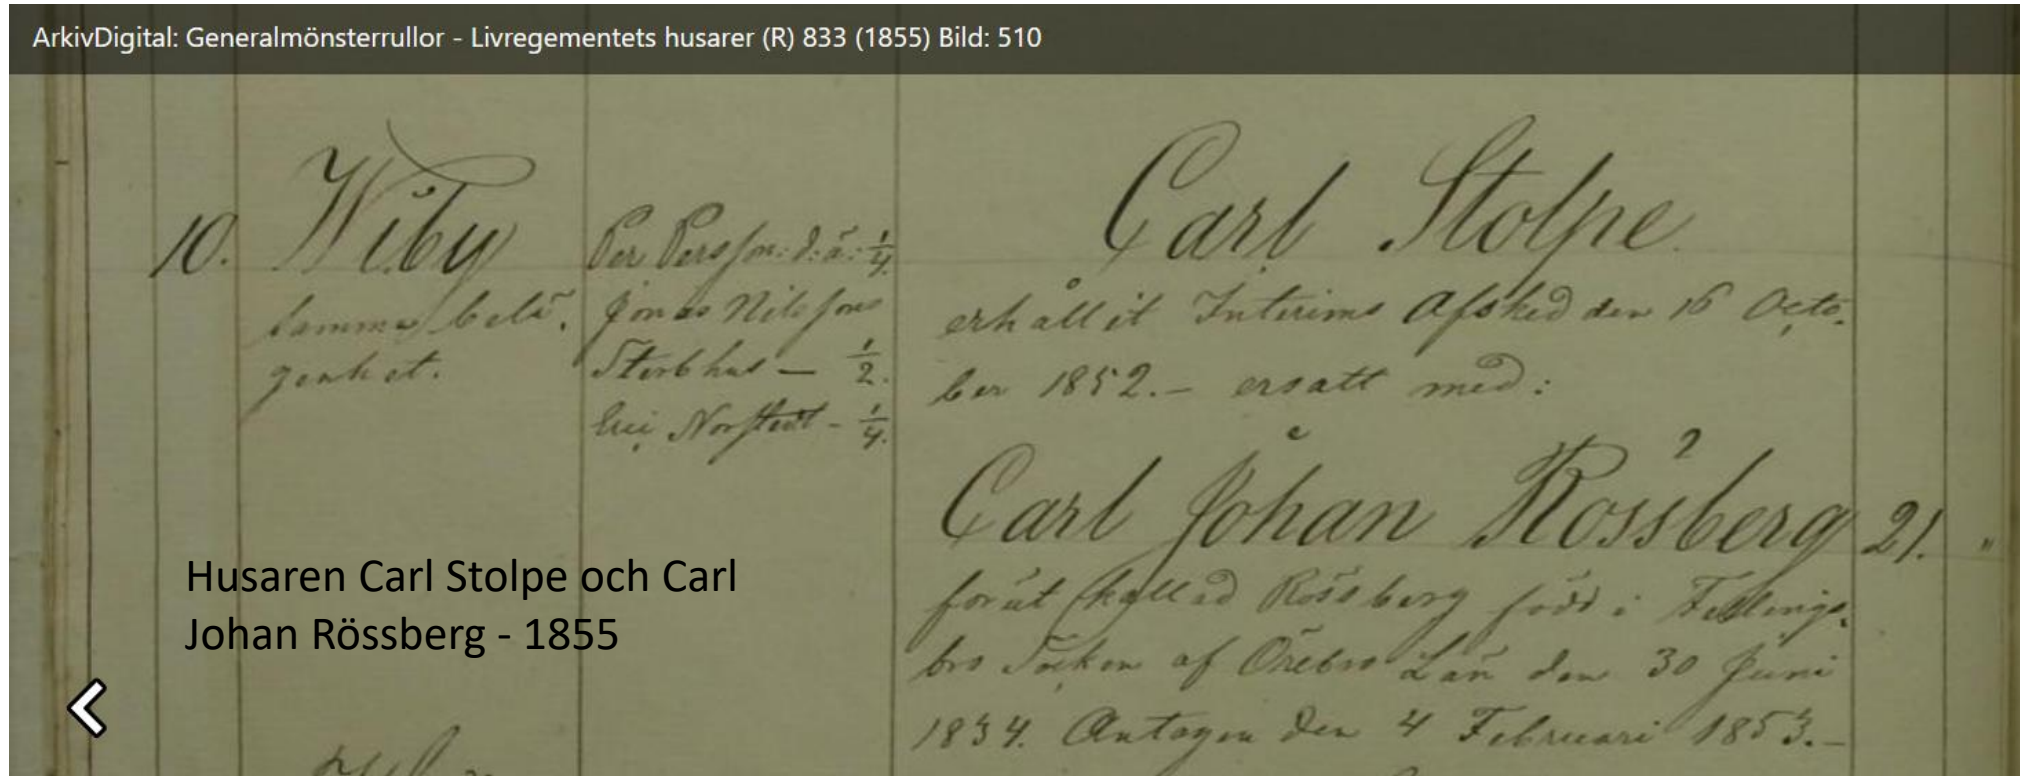 ArkivDigital: Generalmönsterrullor - Livregementets husarer (R) 833 (1855) Bild: 510
10. Wiby
samma belä-
genhet.
Per Persson: d: ä: 1/4.
Jonas Nilssons
Sterbhus — 1/2.
Norstedt - 1/4.
Carl Stolpe
erhållit Interims Afsked den 16 Octo-
ber 1852. - ersatt med:
Carl Johan Rössberg 21. "
förut kallad Rössberg född i Fellings-
bro Socken af Örebro Län den 30 Juni
1834. Antagen den 4 Februari 1853. -
Husaren Carl Stolpe och Carl
Johan Rössberg - 1855